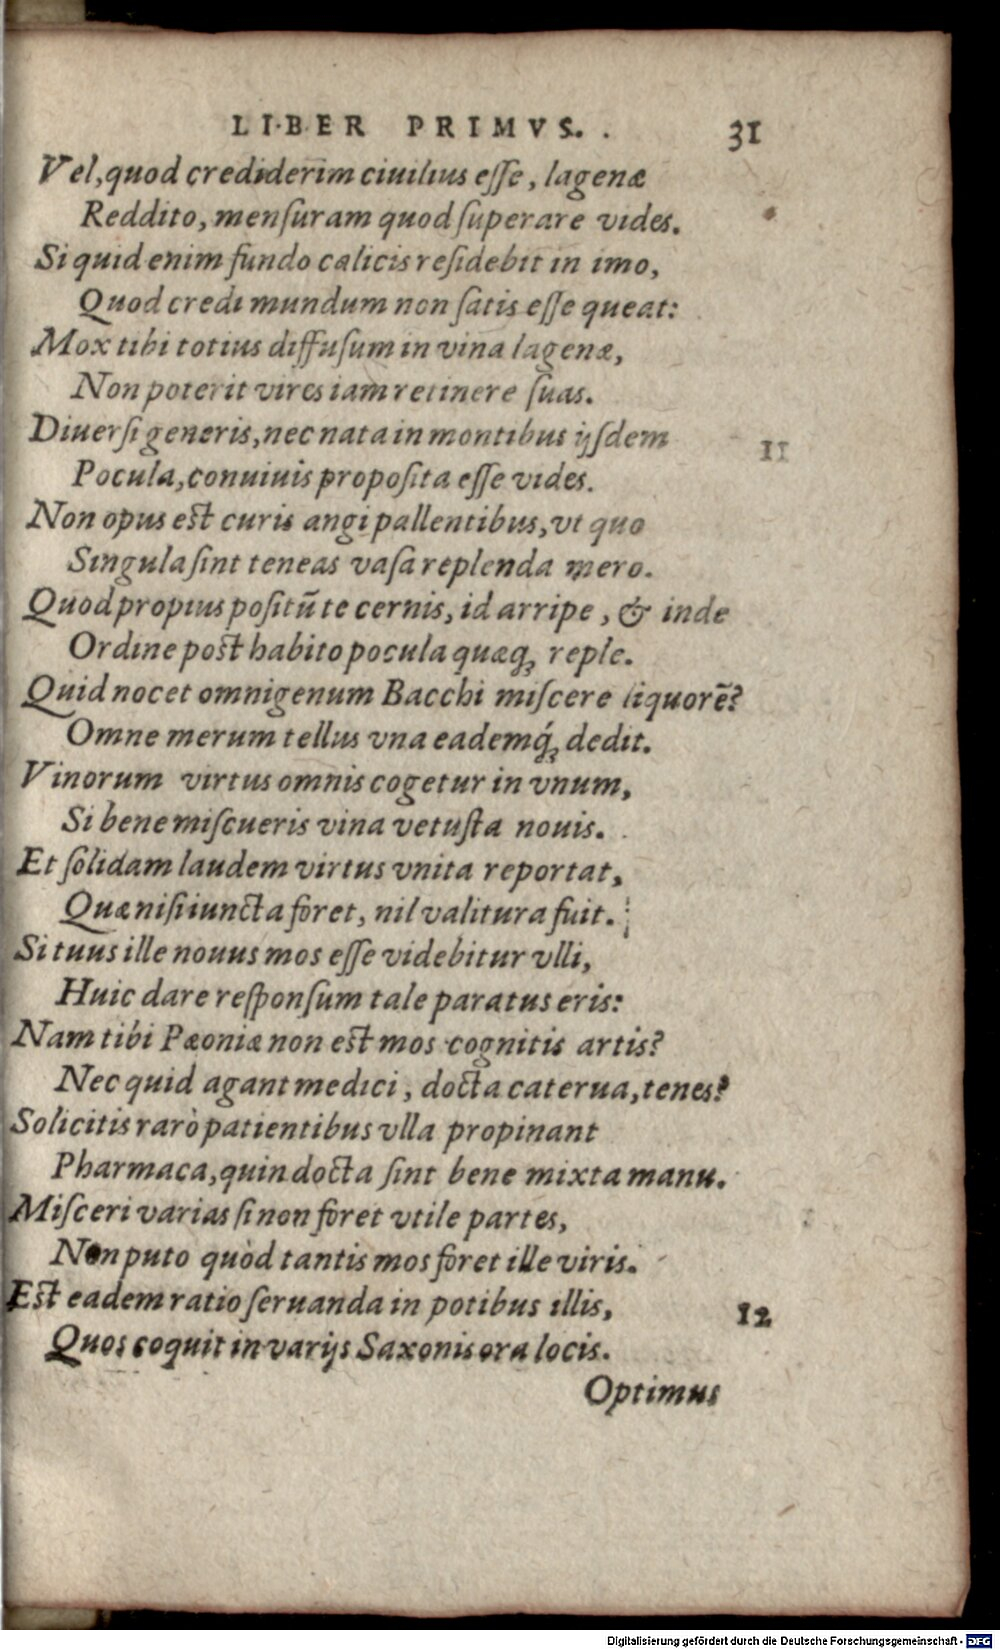 LIBER PRIMVS. 31
Vel, quod crediderim ciuilius esse, lagenæ
Reddito, mensuram quod superare vides.
Si quid enim fundo calicis residebit in imo,
Quod credi mundum non satis esse queat:
Mox tibi totius diffusum in vina lagenæ,
Non poterit vires iam retinere suas.
Diuersi generis, nec nata in montibus ijsdem 11
Pocula, conuiuis proposita esse vides.
Non opus est curis angi pallentibus, vt quo
Singula sint teneas vasa replenda mero.
Quod propius positū te cernis, id arripe, & inde
Ordine post habito pocula quæq; reple.
Quid nocet omnigenum Bacchi miscere liquorē?
Omne merum tellus vna eademq́; dedit.
Vinorum virtus omnis cogetur in vnum,
Si bene miscueris vina vetusta nouis.
Et solidam laudem virtus vnita reportat,
Quæ nisi iuncta foret, nil valitura fuit.
Si tuus ille nouus mos esse videbitur vlli,
Huic dare responsum tale paratus eris:
Nam tibi Pæoniæ non est mos cognitis artis?
Nec quid agant medici, docta caterua, tenes?
Solicitis rarò patientibus vlla propinant
Pharmaca, quin docta sint bene mixta manu.
Misceri varias si non foret vtile partes,
Non puto quòd tantis mos foret ille viris.
Est eadem ratio seruanda in potibus illis, 12
Quos coquit in varijs Saxonis ora locis.
Optimus
Digitalisierung gefördert durch die Deutsche Forschungsgemeinschaft - DFG